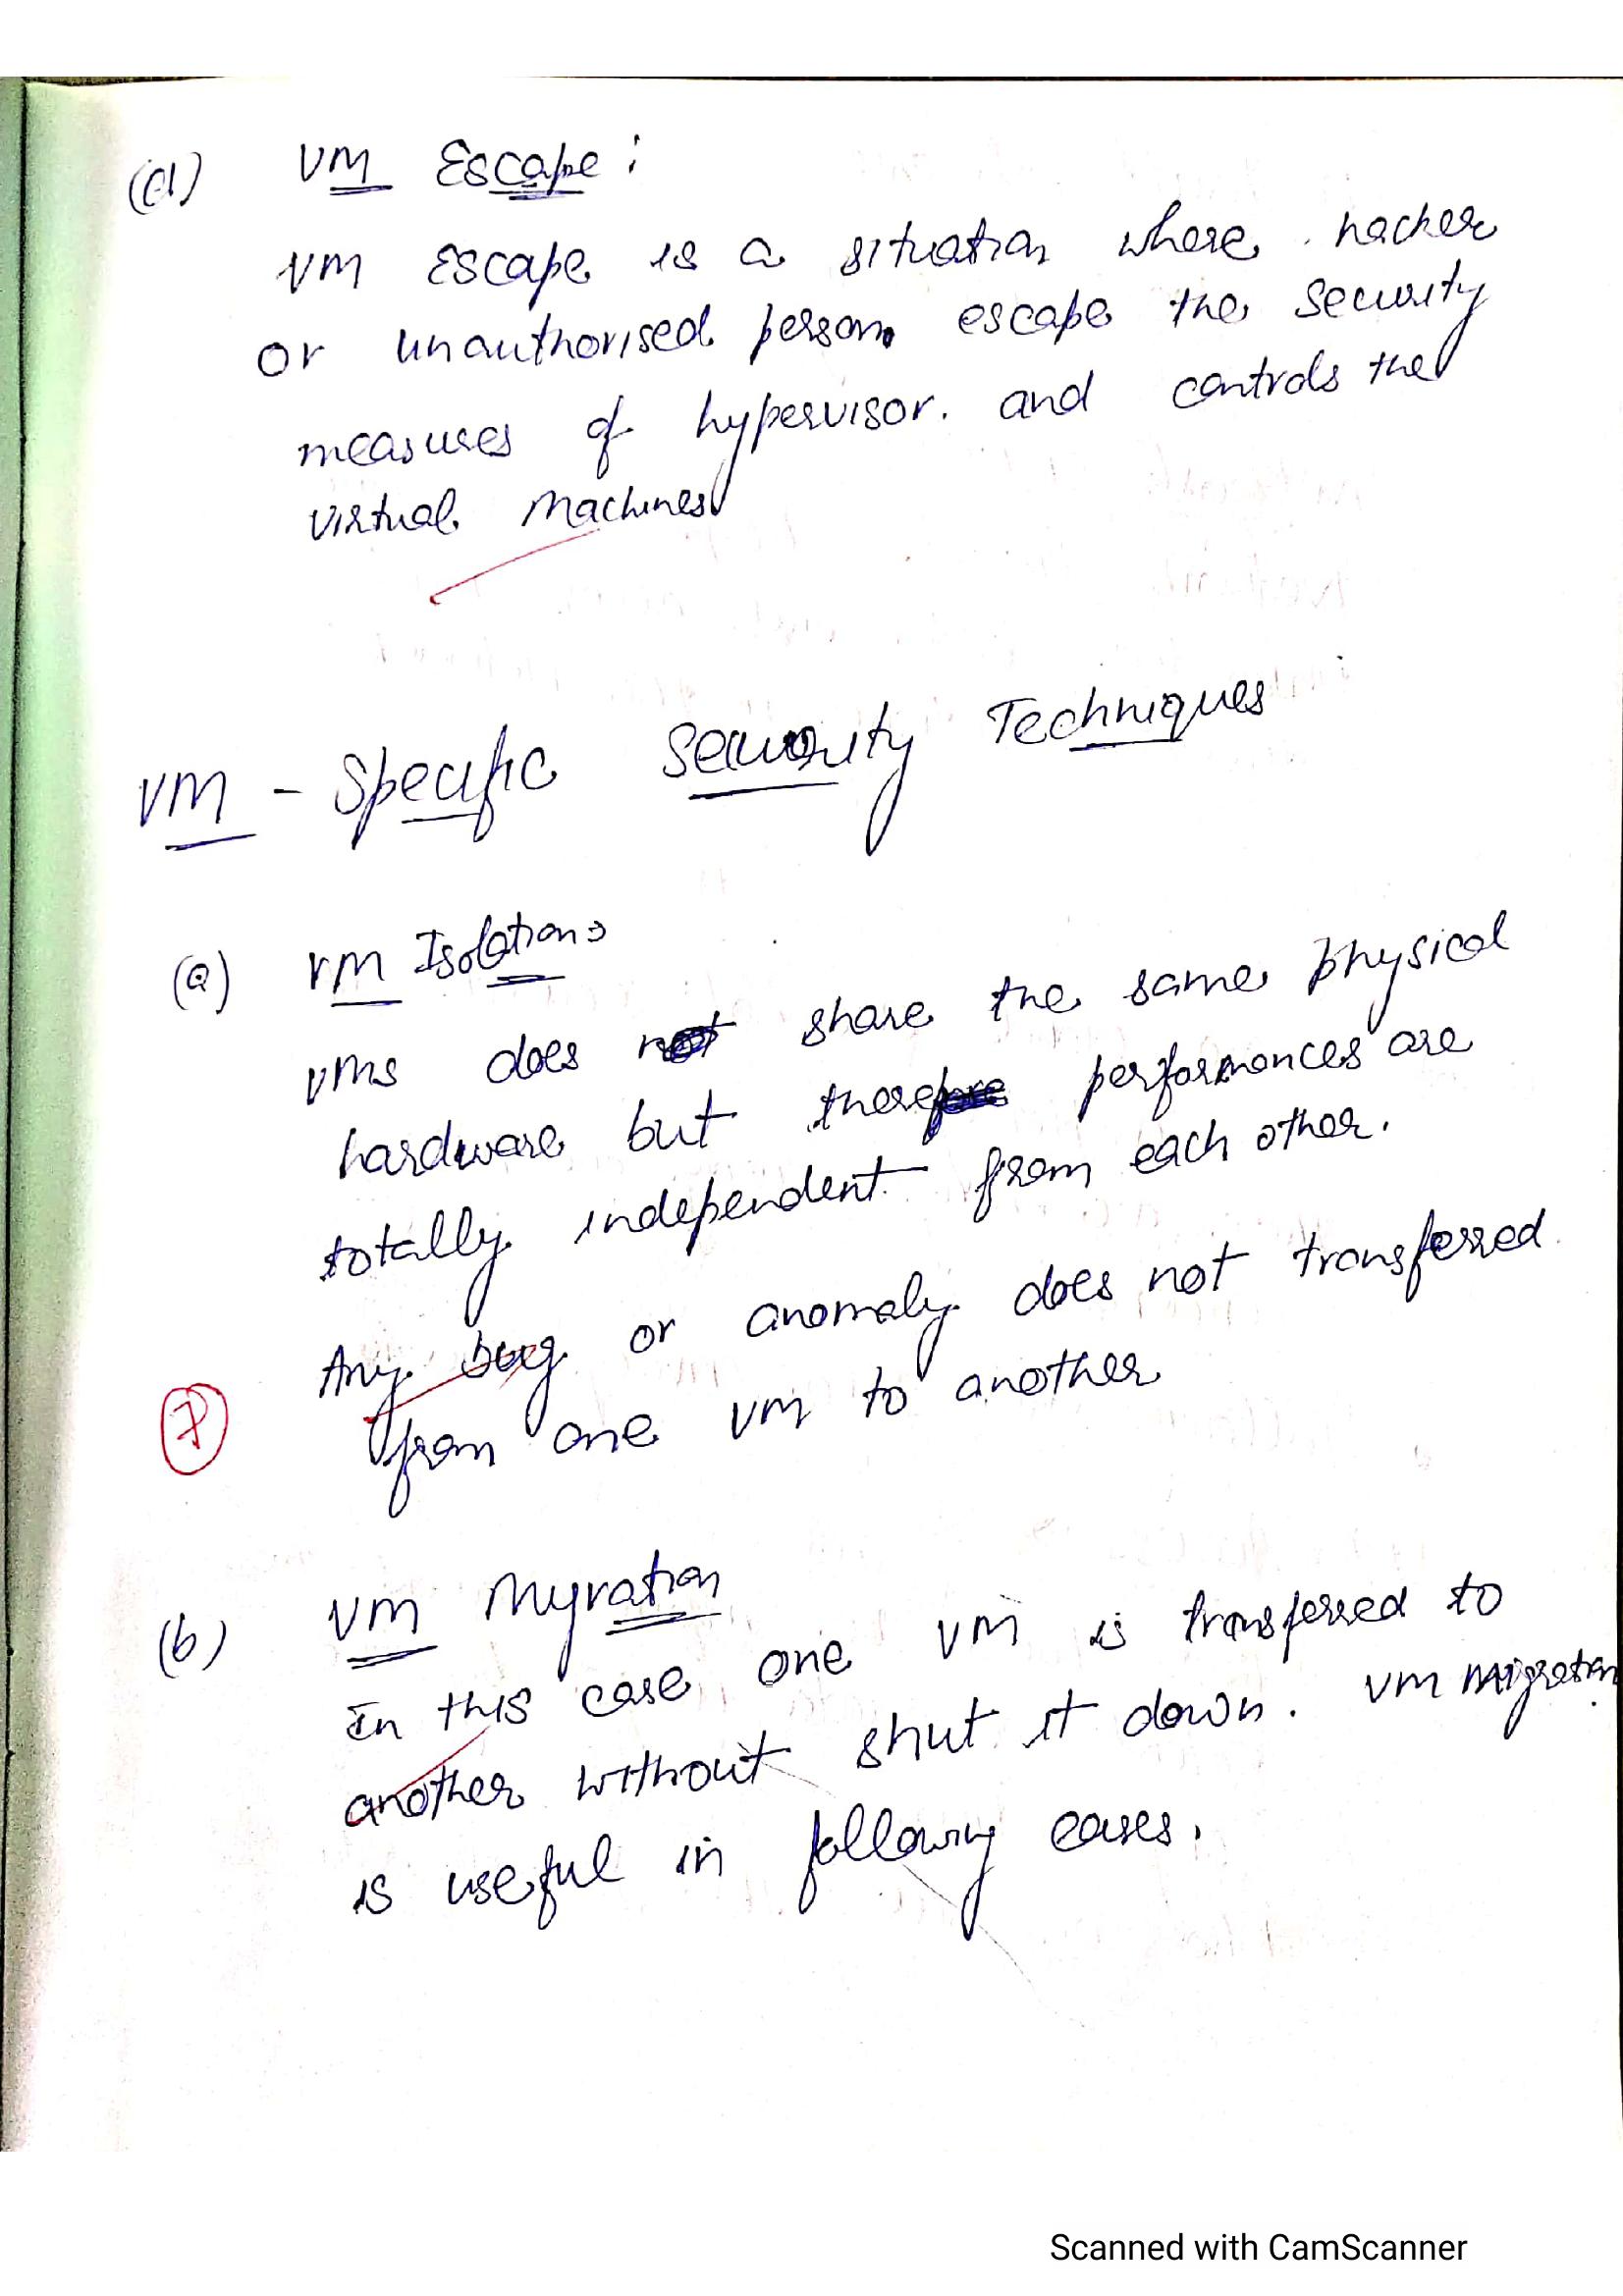 (d) VM Escape :
VM Escape is a situation where hacker
or unauthorised person escape the security
measures of hypervisor. and controls the
virtual machines
VM - Specific Security Techniques
(a) VM Isolation
VMs does not share the same physical
hardware but there performances are
totally independent from each other.
Any bug or anomaly does not transferred
7
from one VM to another
(b) VM Mygration
In this case one VM is transferred to
another without shut it down. VM migration
is useful in following cases.
Scanned with CamScanner